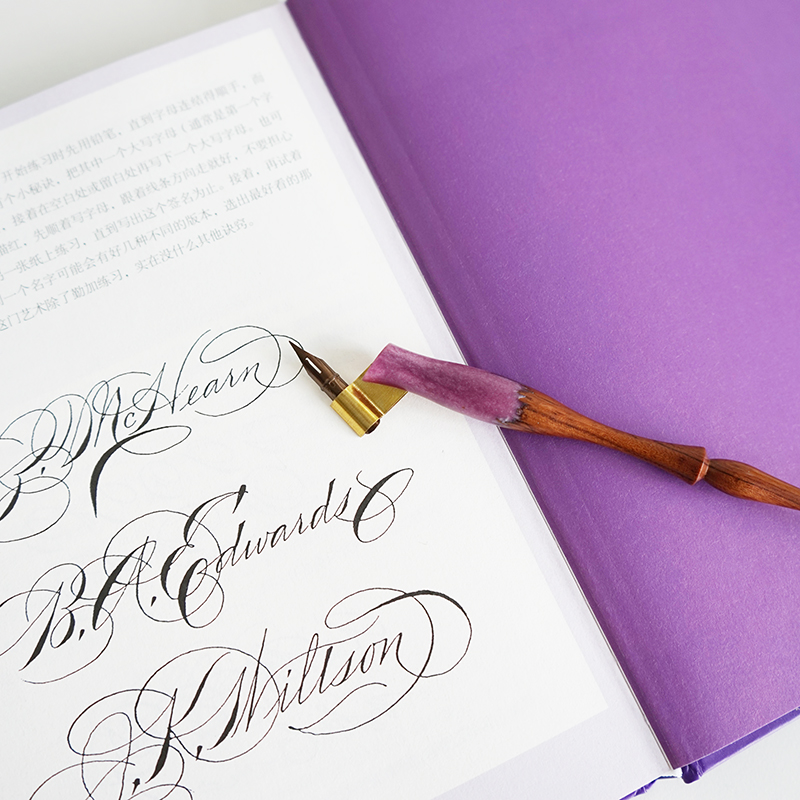 开始练习时先用铅笔，直到字母连结得顺手，而
个小秘诀，把其中一个大写字母（通常是第一个字
，接着在空白处或留白处再写下一个大写字母，也可
描红，先顺着写字母，跟着线条方向走就好，不要担心
一张纸上练习，直到写出这个签名为止。接着，再试着
一个名字可能会有好几种不同的版本，选出最好看的那
这门艺术除了勤加练习，实在没什么其他诀窍。
McHearn
B. A. Edwards
J. K. Willson